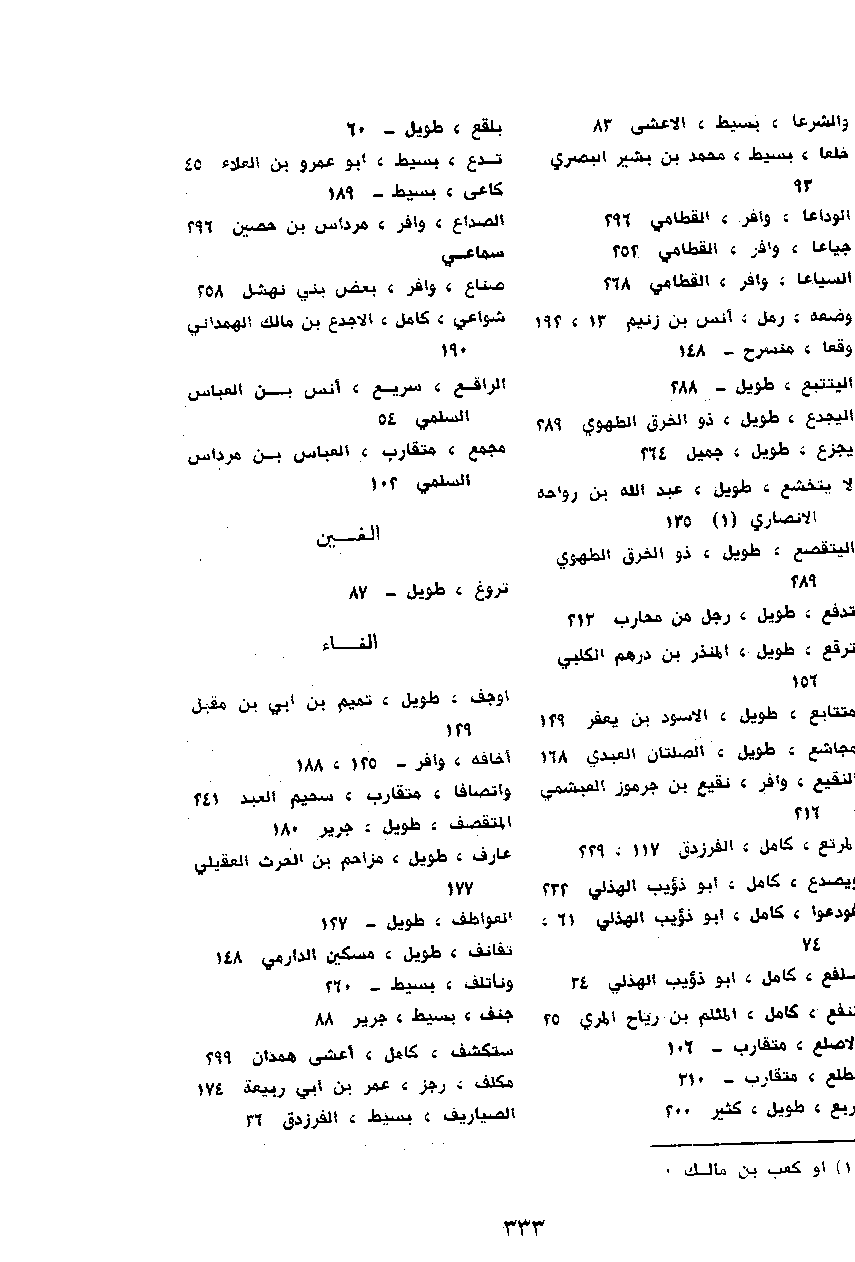 والشرعا ، بسيط ، الاعشى ٨٣
خلعا ، بسيط ، محمد بن بشير البصري
٩٣
الوداعا ، وافر ، القطامي ٢٩٦
جياعا ، وافر ، القطامي ٢٥٢
السياعا ، وافر ، القطامي ٢٦٨
وضعه ، رمل ، أنس بن زنيم ١٣ ، ١٩٢
وقعا ، منسرح ـ ١٤٨
اليتتبع ، طويل ـ ٢٨٨
اليجدع ، طويل ، ذو الخرق الطهوي ٢٨٩
يجزع ، طويل ، جميل ٢٦٤
لا يتخشع ، طويل ، عبد الله بن رواحه
الانصاري (١) ١٣٥
اليتقصع ، طويل ، ذو الخرق الطهوي
٢٨٩
تدفع ، طويل ، رجل من محارب ٢١٣
ترقع ، طويل ، المنذر بن درهم الكلبي
١٥٦
متتابع ، طويل ، الاسود بن يعفر ١٢٩
مجاشع ، طويل ، الصلتان العبدي ١٦٨
النقيع ، وافر ، نقيع بن جرموز العبشمي
٢١٦
لمرتع ، كامل ، الفرزدق ١١٧ ، ٢٢٩
ويصدع ، كامل ، أبو ذؤيب الهذلي ٢٣٢
فودعوا ، كامل ، ابو ذؤيب الهذلي ٦١ ،
٧٤
سلفع ، كامل ، ابو ذؤيب الهذلي ٣٤
تنفع ، كامل ، المثلم بن رياح المري ٢٥
لاصلع ، متقارب ـ ١٠٦
طلع ، متقارب ـ ٣١٠
ربع ، طويل ، كثير ٢٠٠
١) او كعب بن مالك ٠
بلقع ، طويل ـ ٦٠
تدع ، بسيط ، ابو عمرو بن العلاء ٤٥
كاعى ، بسيط ـ ١٨٩
الصداع ، وافر ، مرداس بن حصين ٢٩٦
سماعي
صناع ، وافر ، بعض بني نهشل ٢٥٨
شواعي ، كامل ، الاجدع بن مالك الهمداني
١٩٠
الراقع ، سريع ، أنس بن العباس
السلمي ٥٤
مجمع ، متقارب ، العباس بن مرداس
السلمي ١٠٢
الغين
تروغ ، طويل ـ ٨٧
الفاء
اوجف ، طويل ، تميم بن ابي بن مقبل
١٢٩
أخافه ، وافر ـ ١٢٥ ، ١٨٨
وانصافا ، متقارب ، سحيم العبد ٢٤١
المتقصف ، طويل ، جرير ١٨٠
عارف ، طويل ، مزاحم بن الحرث العقيلي
١٧٧
العواطف ، طويل ـ ١٢٧
تفانف ، طويل ، مسكين الدارمي ١٤٨
ونأتلف ، بسيط ـ ٢٦٠
جنف ، بسيط ، جرير ٨٨
ستكشف ، كامل ، أعشى همدان ٢٩٩
مكلف ، رجز ، عمر بن ابي ربيعة ١٧٤
الصياريف ، بسيط ، الفرزدق ٣٦
٣٣٣